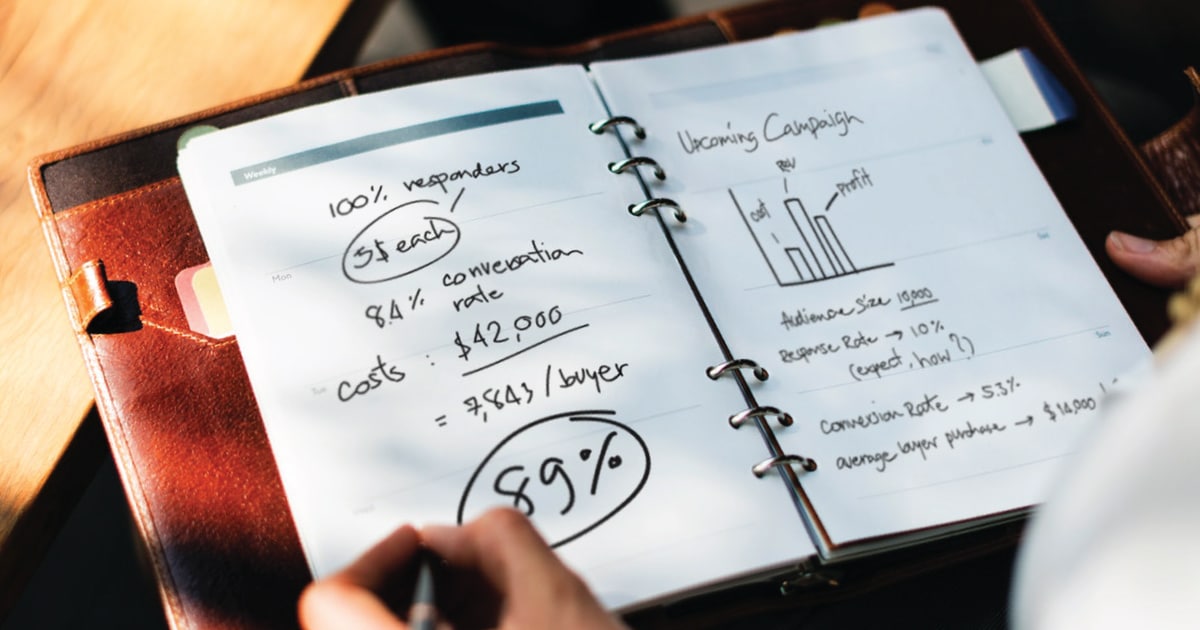 Weekly
100% responders
5$ each
8.4% conversation
rate
costs : $42,000
= 7,843/buyer
89%
Mon
Upcoming Campaign
cost
Rev
profit
Audience Size 10,000
Response Rate → 10%
(expect, how?)
Conversion Rate → 5.3%
average buyer purchase → $14,000
Sat
Sun